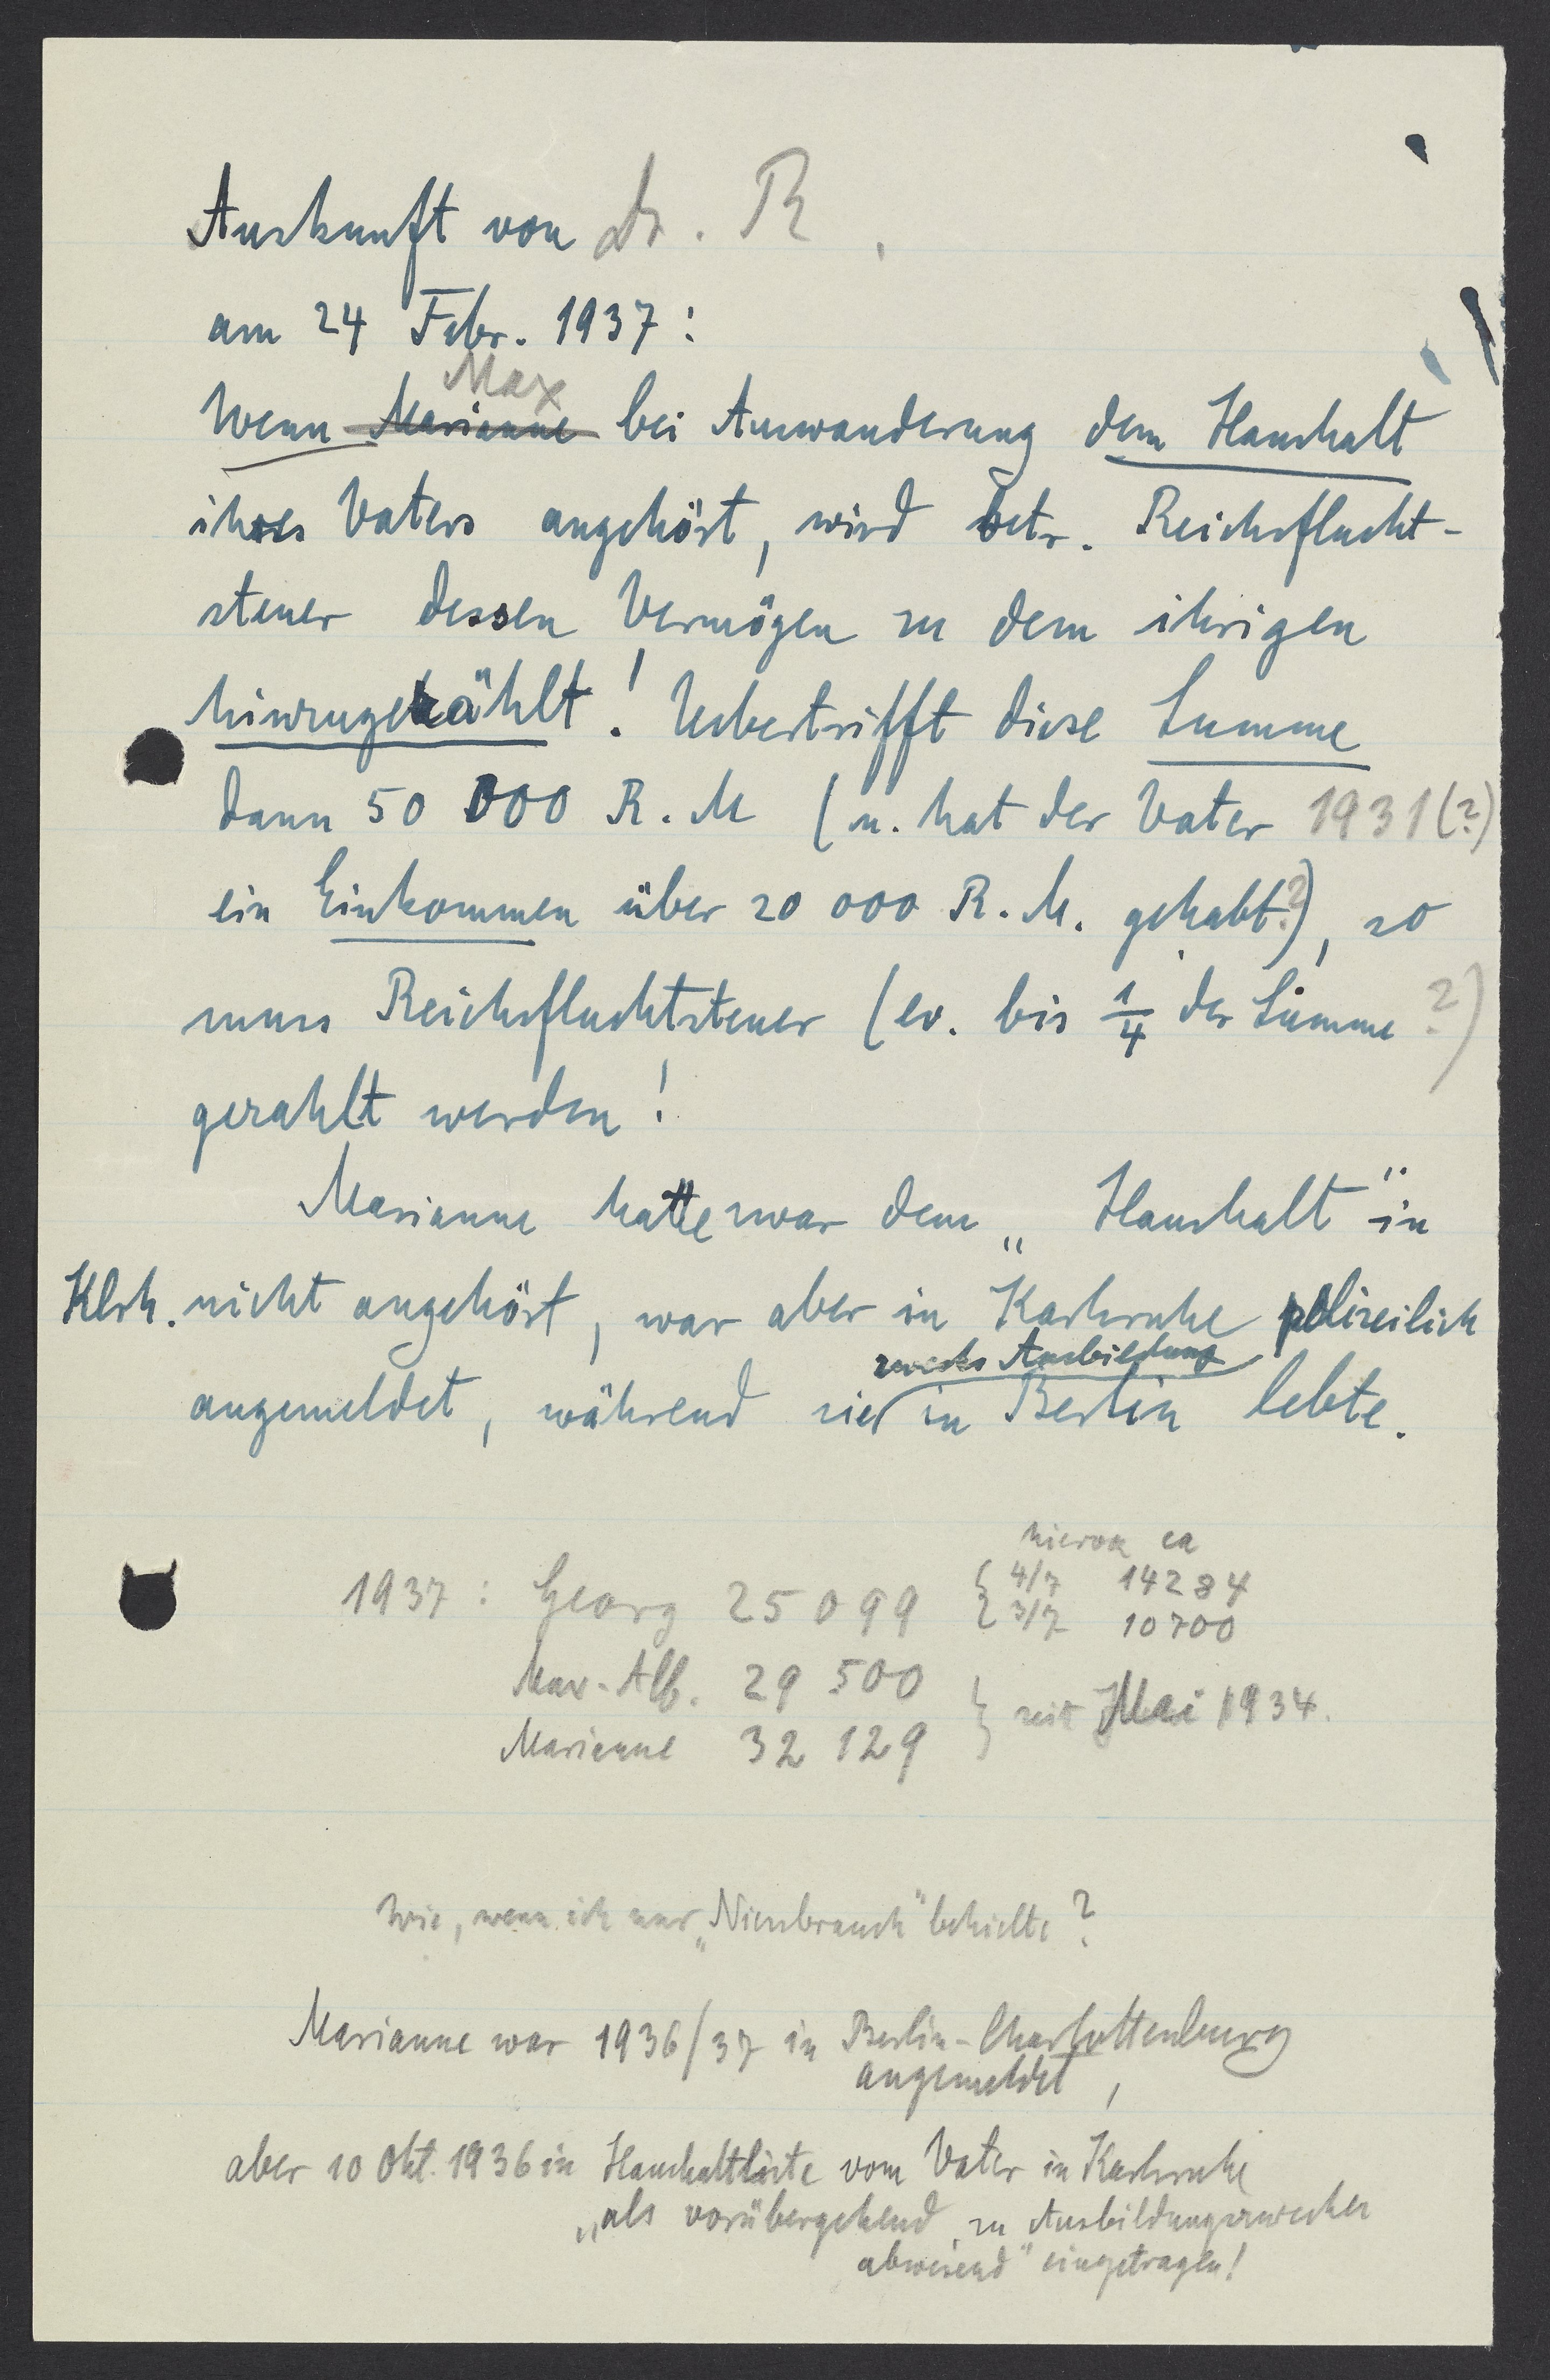 Auskunft von Dr. R.
am 24 Febr. 1937:
Max
Wenn Marianne bei Auswanderung dem Haushalt
ihres Vaters angehört, wird betr. Reichsflucht-
steuer dessen Vermögen zu dem ihrigen
hinzugezählt! Uebertrifft diese Summe
dann 50 000 R. M (u. hat der Vater 1931(?)
ein Einkommen über 20 000 R. M. gehabt?), so
muss Reichsfluchtsteuer (ev. bis 1/4 der Summe?)
gezahlt werden!
Marianne hatte zwar dem „Haushalt" in
Klrh. nicht angehört, war aber in Karlsruhe polizeilich
zwecks Ausbildung
angemeldet, während sie in Berlin lebte.
hievon ca
1937: Georg 25 099 { 4/7 14284
{ 3/7 10700
Max-Alb. 29 500
Marianne 32 129 } seit Mai 1934.
Wie, wenn ich nur „Niessbrauch" behielte?
Marianne war 1936/37 in Berlin-Charlottenburg
angemeldet,
aber 10 Okt. 1936 in Haushaltliste vom Vater in Karlsruhe
„als vorübergehend zu Ausbildungszwecken
abwesend" eingetragen!